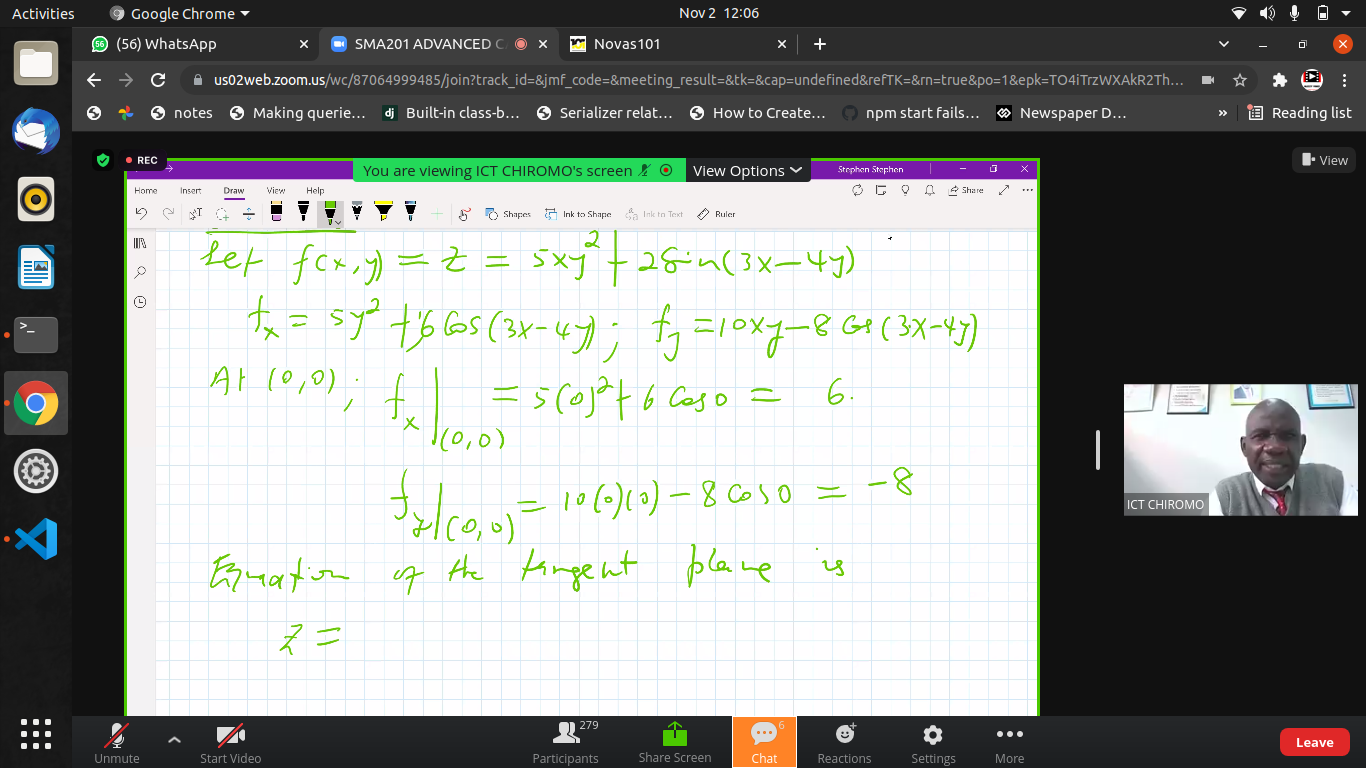 Activities Google Chrome Nov 2 12:06
(56) WhatsApp SMA201 ADVANCED C Novas101
us02web.zoom.us/wc/87064999485/join?track_id=&jmf_code=&meeting_result=&tk=&cap=undefined&refTK=&rn=true&po=1&epk=TO4iTrzWXAkR2Th…
notes Making querie… Built-in class-b… Serializer relat… How to Create… npm start fails… Newspaper D… » Reading list
REC You are viewing ICT CHIROMO's screen View Options Stephen Stephen View
Home Insert Draw View Help Share
Shapes Ink to Shape Ink to Text Ruler
Let f(x,y) = z = 5xy² + 2Sin(3x-4y)
fx = 5y² + 6 Cos(3x-4y); fy = 10xy - 8 Cos(3x-4y)
At (0,0); fx|(0,0) = 5(0)² + 6 Cos0 = 6.
fy|(0,0) = 10(0)(0) - 8 Cos0 = -8
Equation of the tangent plane is
z =
ICT CHIROMO
56
dj
>_
279
6
Unmute Start Video Participants Share Screen Chat Reactions Settings More Leave